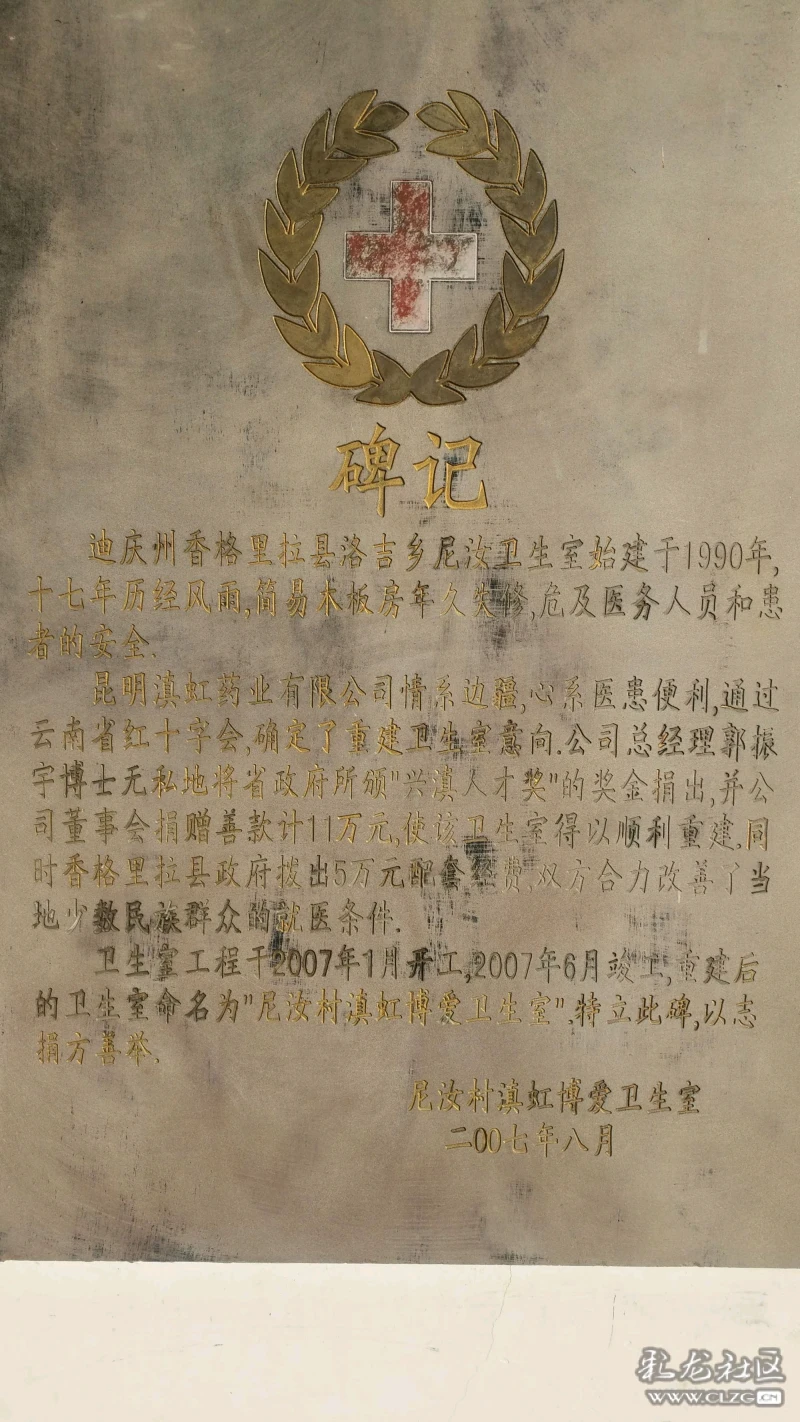 碑记
迪庆州香格里拉县洛吉乡尼汝卫生室始建于1990年,
十七年历经风雨,简易木板房年久失修,危及医务人员和患
者的安全.
昆明滇虹药业有限公司情系边疆,心系医患便利,通过
云南省红十字会,确定了重建卫生室意向.公司总经理郭振
宇博士无私地将省政府所颁"兴滇人才奖"的奖金捐出,并公
司董事会捐赠善款计11万元,使该卫生室得以顺利重建.同
时香格里拉县政府拨出5万元配套经费,双方合力改善了当
地少数民族群众的就医条件.
卫生室工程于2007年1月开工,2007年6月竣工,重建后
的卫生室命名为"尼汝村滇虹博爱卫生室".特立此碑,以志
捐方善举.
尼汝村滇虹博爱卫生室
二00七年八月
彩龙社区
WWW.CLZG.CN